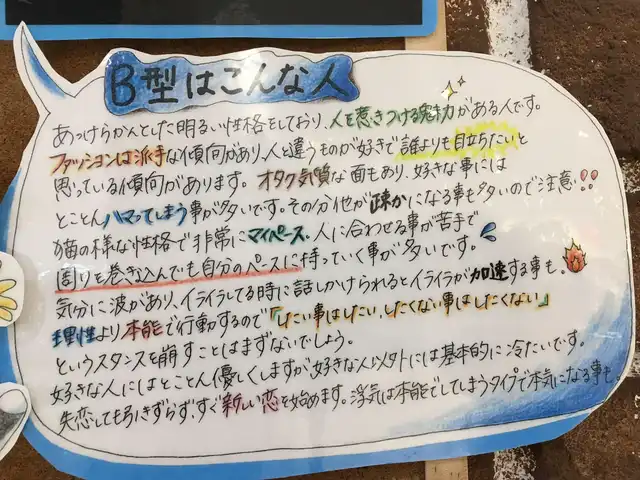 B型はこんな人
あっけらかんとした明るい性格をしており、人を惹きつける魅力がある人です。
ファッションは派手な傾向があり、人と違うものが好きで誰よりも目立ちたいと
思っている傾向があります。オタク気質な面もあり、好きな事には
とことんハマってしまう事が多いです。その分他が疎かになる事も多いので注意!!
猫の様な性格で非常にマイペース。人に合わせる事が苦手で
周りを巻き込んでも自分のペースに持っていく事が多いです。
気分に波があり、イライラしてる時に話しかけられるとイライラが加速する事も。
理性より本能で行動するので「したい事はしたい、したくない事はしたくない」
というスタンスを崩すことはまずないでしょう。
好きな人にはとことん優しくしますが好きな人以外には基本的に冷たいです。
失恋しても引きずらず、すぐ新しい恋を始めます。浮気は本能でしてしまうタイプで本気になる事も。